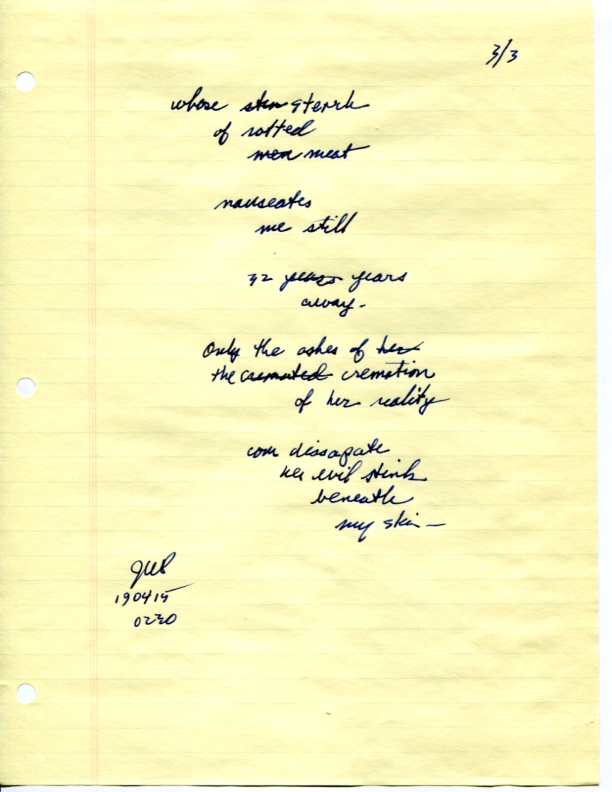 3/3
whose sten sterrk
of rotted
men meat
nauseates
me still
32 years years
away-
Only the ashes of her
the cremated cremation
of her reality
can dissapate
her evil stink
beneath
my skin—
190415
0230